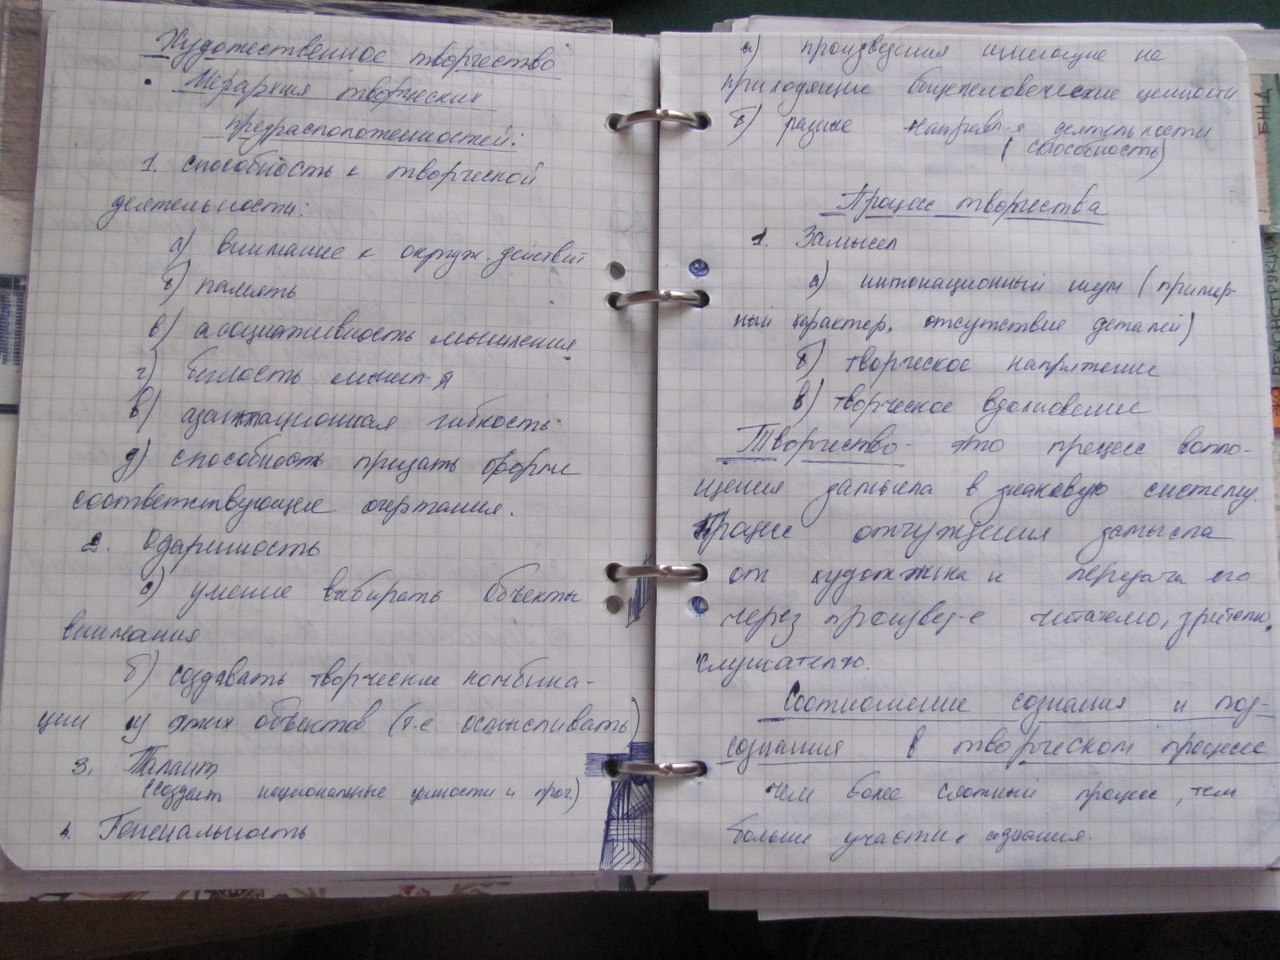 Художественное творчество
• Иерархия творческих
предрасположенностей:
1. способность к творческой
деятельности:
а) внимание к окруж. действит
б) память
в) ассоциативность мышления
г) беглость мышл-я
в) адаптационная гибкость
д) способность придать форме
соответствующие очертания.
2. Одаренность
а) умение выбирать объекты
внимания
б) создавать творческие комбина-
ции из этих объектов (т.е осмысливать)
3. Талант
(создает национальные ценности и прог.)
4. Гениальность
а) произведения имеющие не
приходящие общечеловеческие ценности
б) разные направл-я деятельности
(способность)
Процесс творчества
1. Замысел
а) интонационный шум (пример-
ный характер, отсутствие деталей)
б) творческое напряжение
в) творческое вдохновение
Творчество - это процесс вопло-
щения замысла в знаковую систему
Процесс отчуждения замысла
от художника и передача его
через произвед-е читателю, зрителю,
слушателю.
Соотношение сознания и под-
сознания в творческом процессе
Чем более сложный процесс, тем
больше участия сознания.